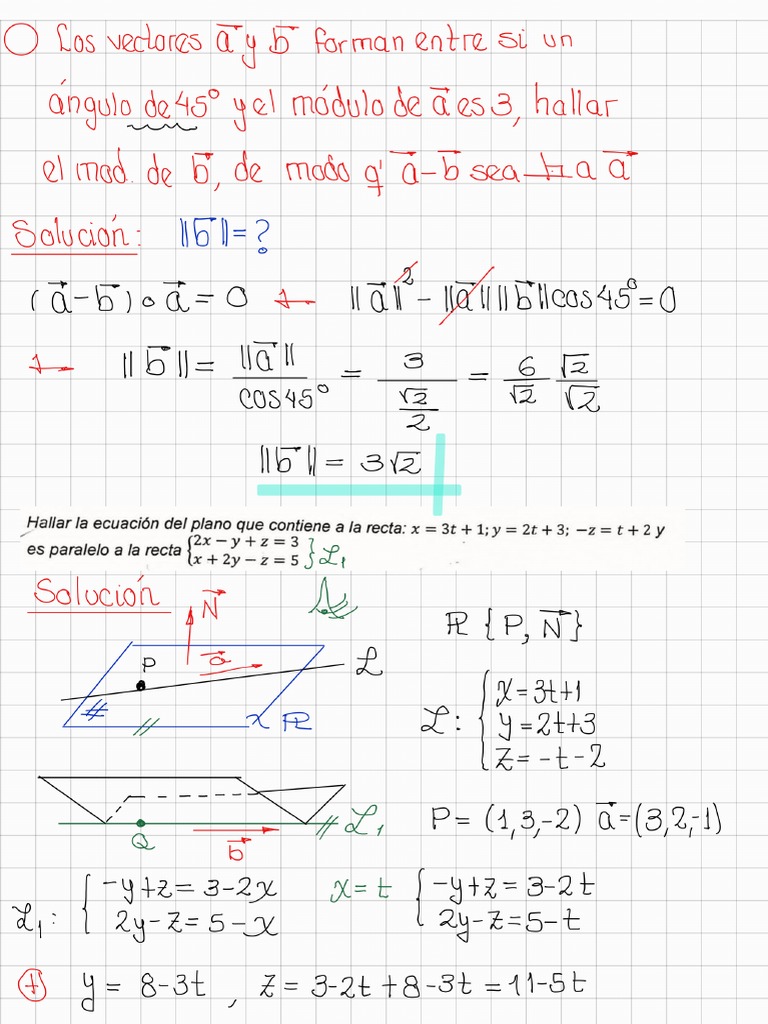 Los vectores a⃗ y b⃗ forman entre si un
ángulo de 45° y el módulo de a⃗ es 3, hallar
el mod. de b⃗, de modo q' a⃗-b⃗ sea ⊥ a a⃗
Solución: ||b⃗||=?
(a⃗-b⃗)∘a⃗=0 → ||a⃗||² - ||a⃗|| ||b⃗|| cos45°=0
→ ||b⃗|| = ||a⃗||/cos45° = 3/(√2/2) = 6/√2 √2/√2
||b⃗|| = 3√2
Hallar la ecuación del plano que contiene a la recta: x = 3t + 1; y = 2t + 3; −z = t + 2 y
es paralelo a la recta {2x − y + z = 3
x + 2y − z = 5 } L₁
Solución
N⃗
PL {P, N⃗}
P a⃗ L
PL
L: { x=3t+1
y=2t+3
z=-t-2
Q b⃗ // L₁
P=(1,3,-2) a⃗=(3,2,-1)
L₁: { -y+z=3-2x
2y-z=5-x
x=t { -y+z=3-2t
2y-z=5-t
(+) y= 8-3t , z= 3-2t+8-3t=11-5t